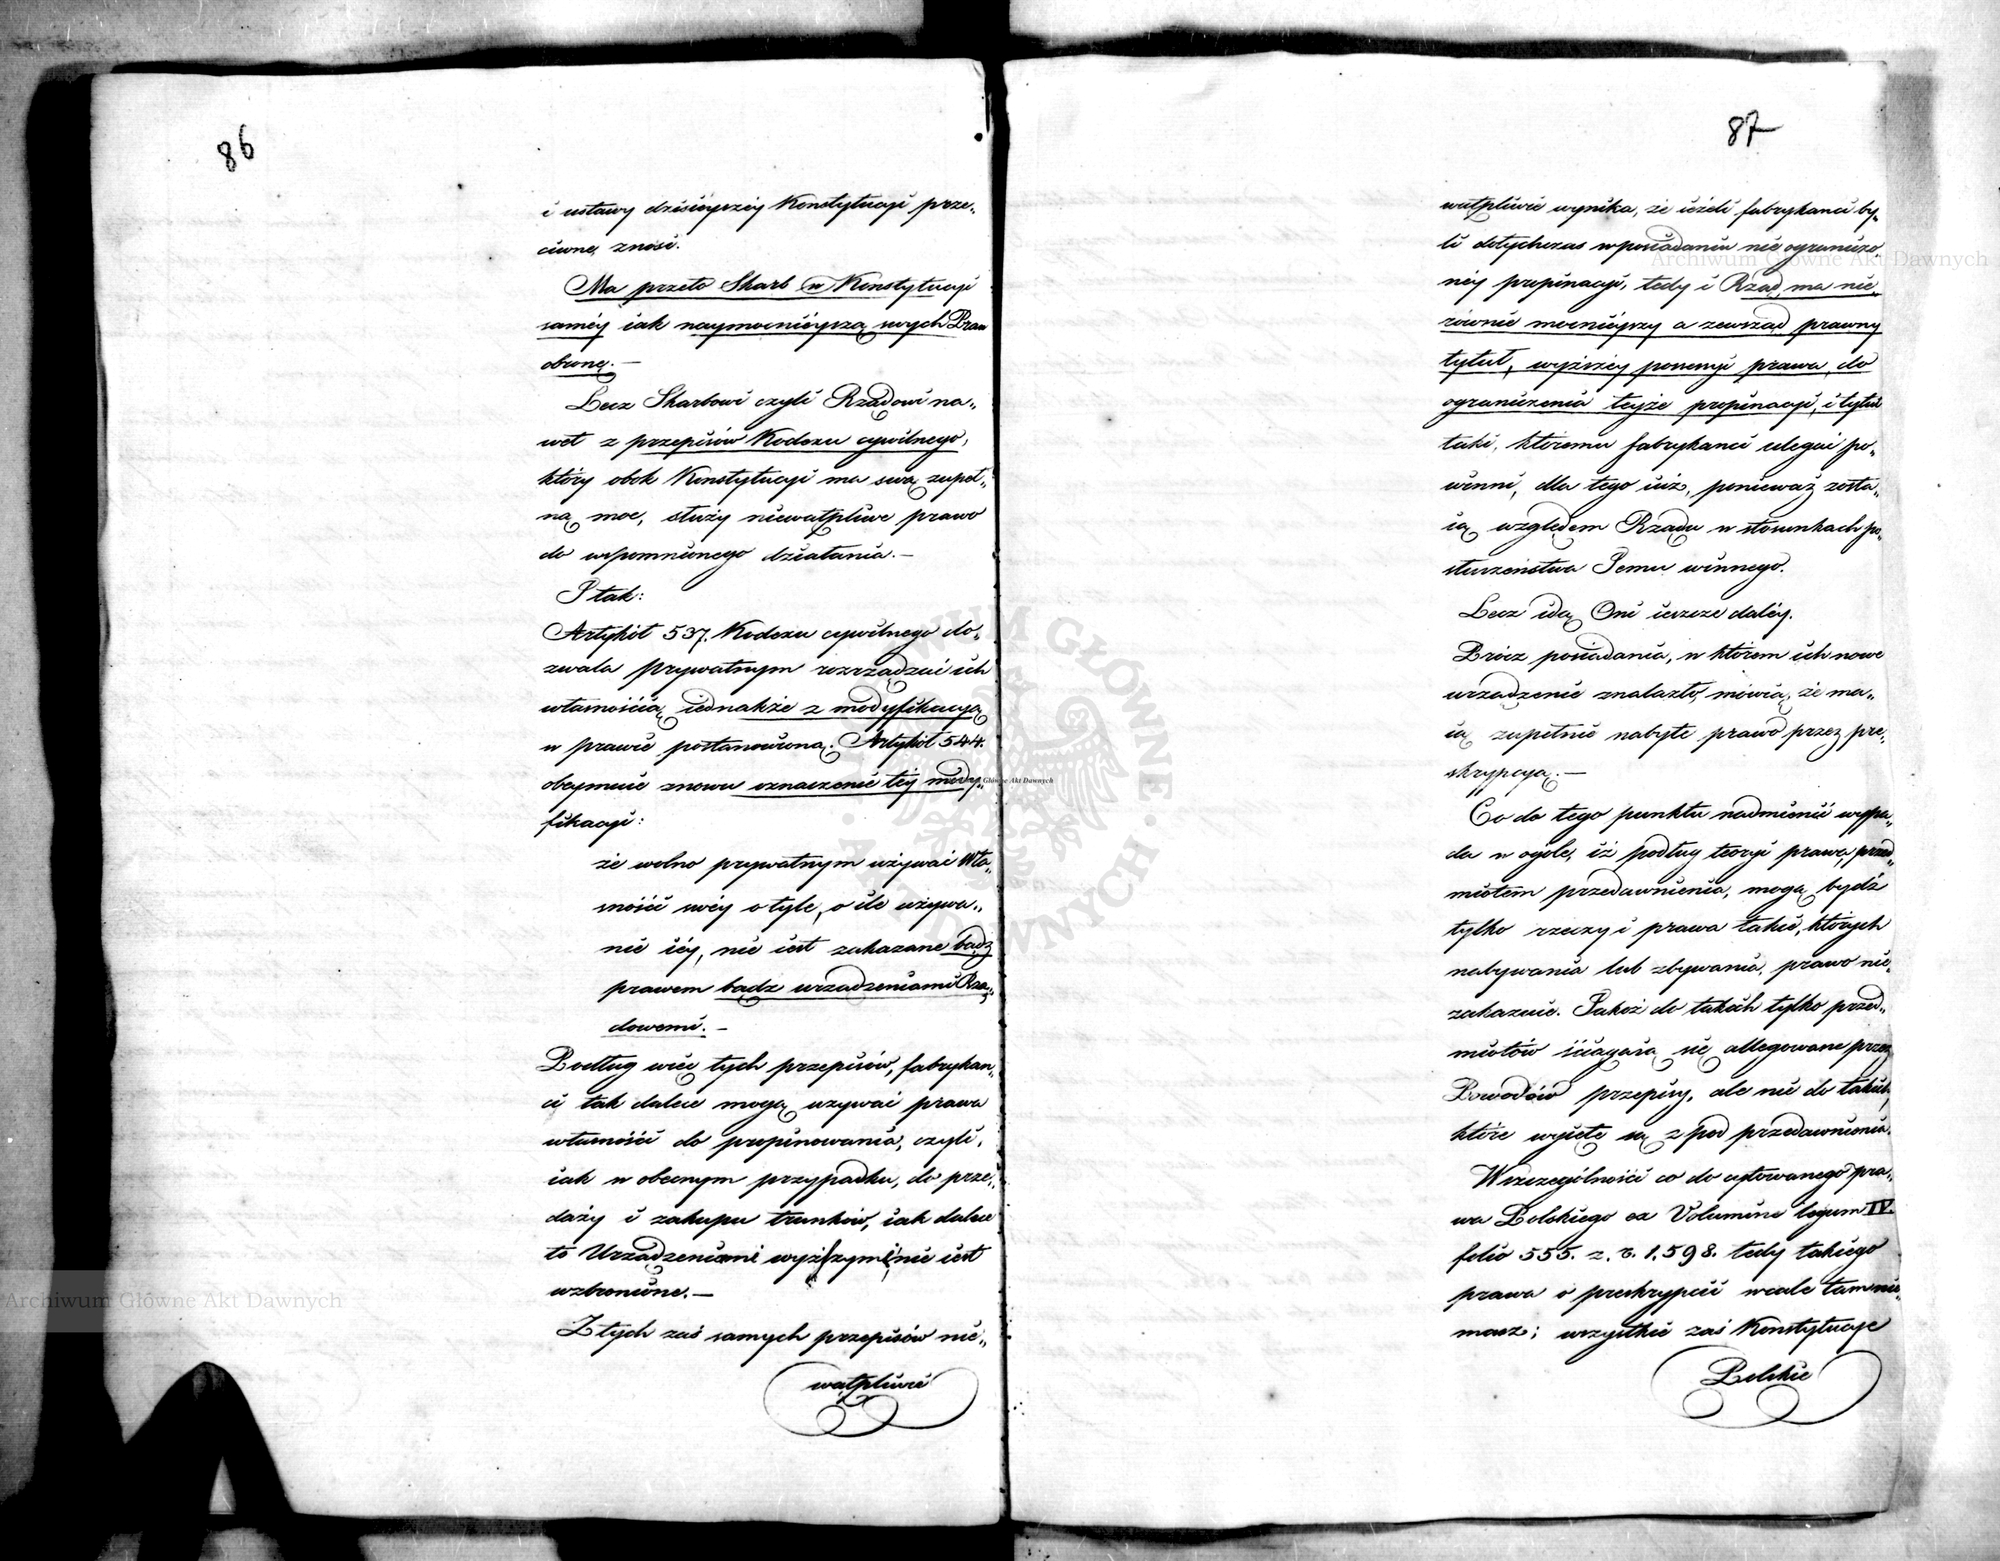 86
i ustawy dzisieyszéy Konstytucyi prze„
ciwne, znosi.
Ma przeto Skarb w Konstytucyi
saméy iak naymocnieyszą swych Praw
obronę.—
Lecz Skarbowi czyli Rządowi na„
wet z przepisów Kodexu cywilnego,
który obok Konstytucyi ma swą zupeł„
ną moc, służy niewątpliwe prawo
do wspomnionego działania.—
I tak:
Artykół 537. Kodexu cywilnego do„
zwala prywatnym rozrządzać ich
własnością, iednakże z modyfikacyą
w prawie postanowioną. Artykół 544.
obeymuie znowu oznaczenie téy mody„
fikacyi:
że wolno prywatnym używać Wła„
sności swéy o tyle, o ile używa„
nie iéy, nie iest zakazane bądz
prawem bądz urządzeniami Rzą„
dowemi.—
Podług więc tych przepisów, fabrykan„
ci tak dalece mogą używać prawa
własności do propinowania, czyli,
iak w obecnym przypadku, do prze„
daży i zakupu trunków, iak dalece
to Urządzeniami wyższymi nie iest
wzbronione.—
Z tych zaś samych przepisów nie„
wątpliwie
87
wątpliwie wynika, że ieżeli fabrykanci by„
li dotychczas w posiadaniu nie ograniczo„
néy propinacyi, tedy i Rząd, ma nie„
równie mocnieyszy a zewsząd prawny
tytuł, wyższéy potencyi prawa, do
ograniczenia teyże propinacyi, i tytuł
taki, któremu fabrykanci ulegać po„
winni, dla tego iuż, ponieważ zosta„
ią względem Rządu w stosunkach po„
słuszeństwa Jemu winnego.
Lecz idą Oni ieszcze daléy.
Prócz posiadania, w którem ich nowe
urządzenie znalazło, mówią, że ma„
ią zupełnie nabyte prawo przez pre„
skrypcyą.—
Co do tego punktu nadmienić wypa„
da w ogóle, iż podług teoryi prawa, przed„
miotem przedawnienia, mogą bydź
tylko rzeczy i prawa takie, których
nabywania lub zbywania, prawo nie„
zakazuie. Jakoż do takich tylko przed„
miotów ściągaią się allegowane przez
Powodów przepisy, ale nie do takich,
które wyięte są z pod przedawnienia.
W szczególności co do cytowanego pra„
wa Polskiego ex Volumine legum IV.
folio 555. z. r. 1,598. tedy takiego
prawa o preskrypcii wcale tam nie„
masz; wszystkie zaś Konstytucye
Polskie
Archiwum Główne Akt Dawnych
Archiwum Główne Akt Dawnych